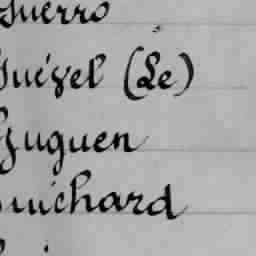 Guerro
Guével (Le)
Guguen
Guichard